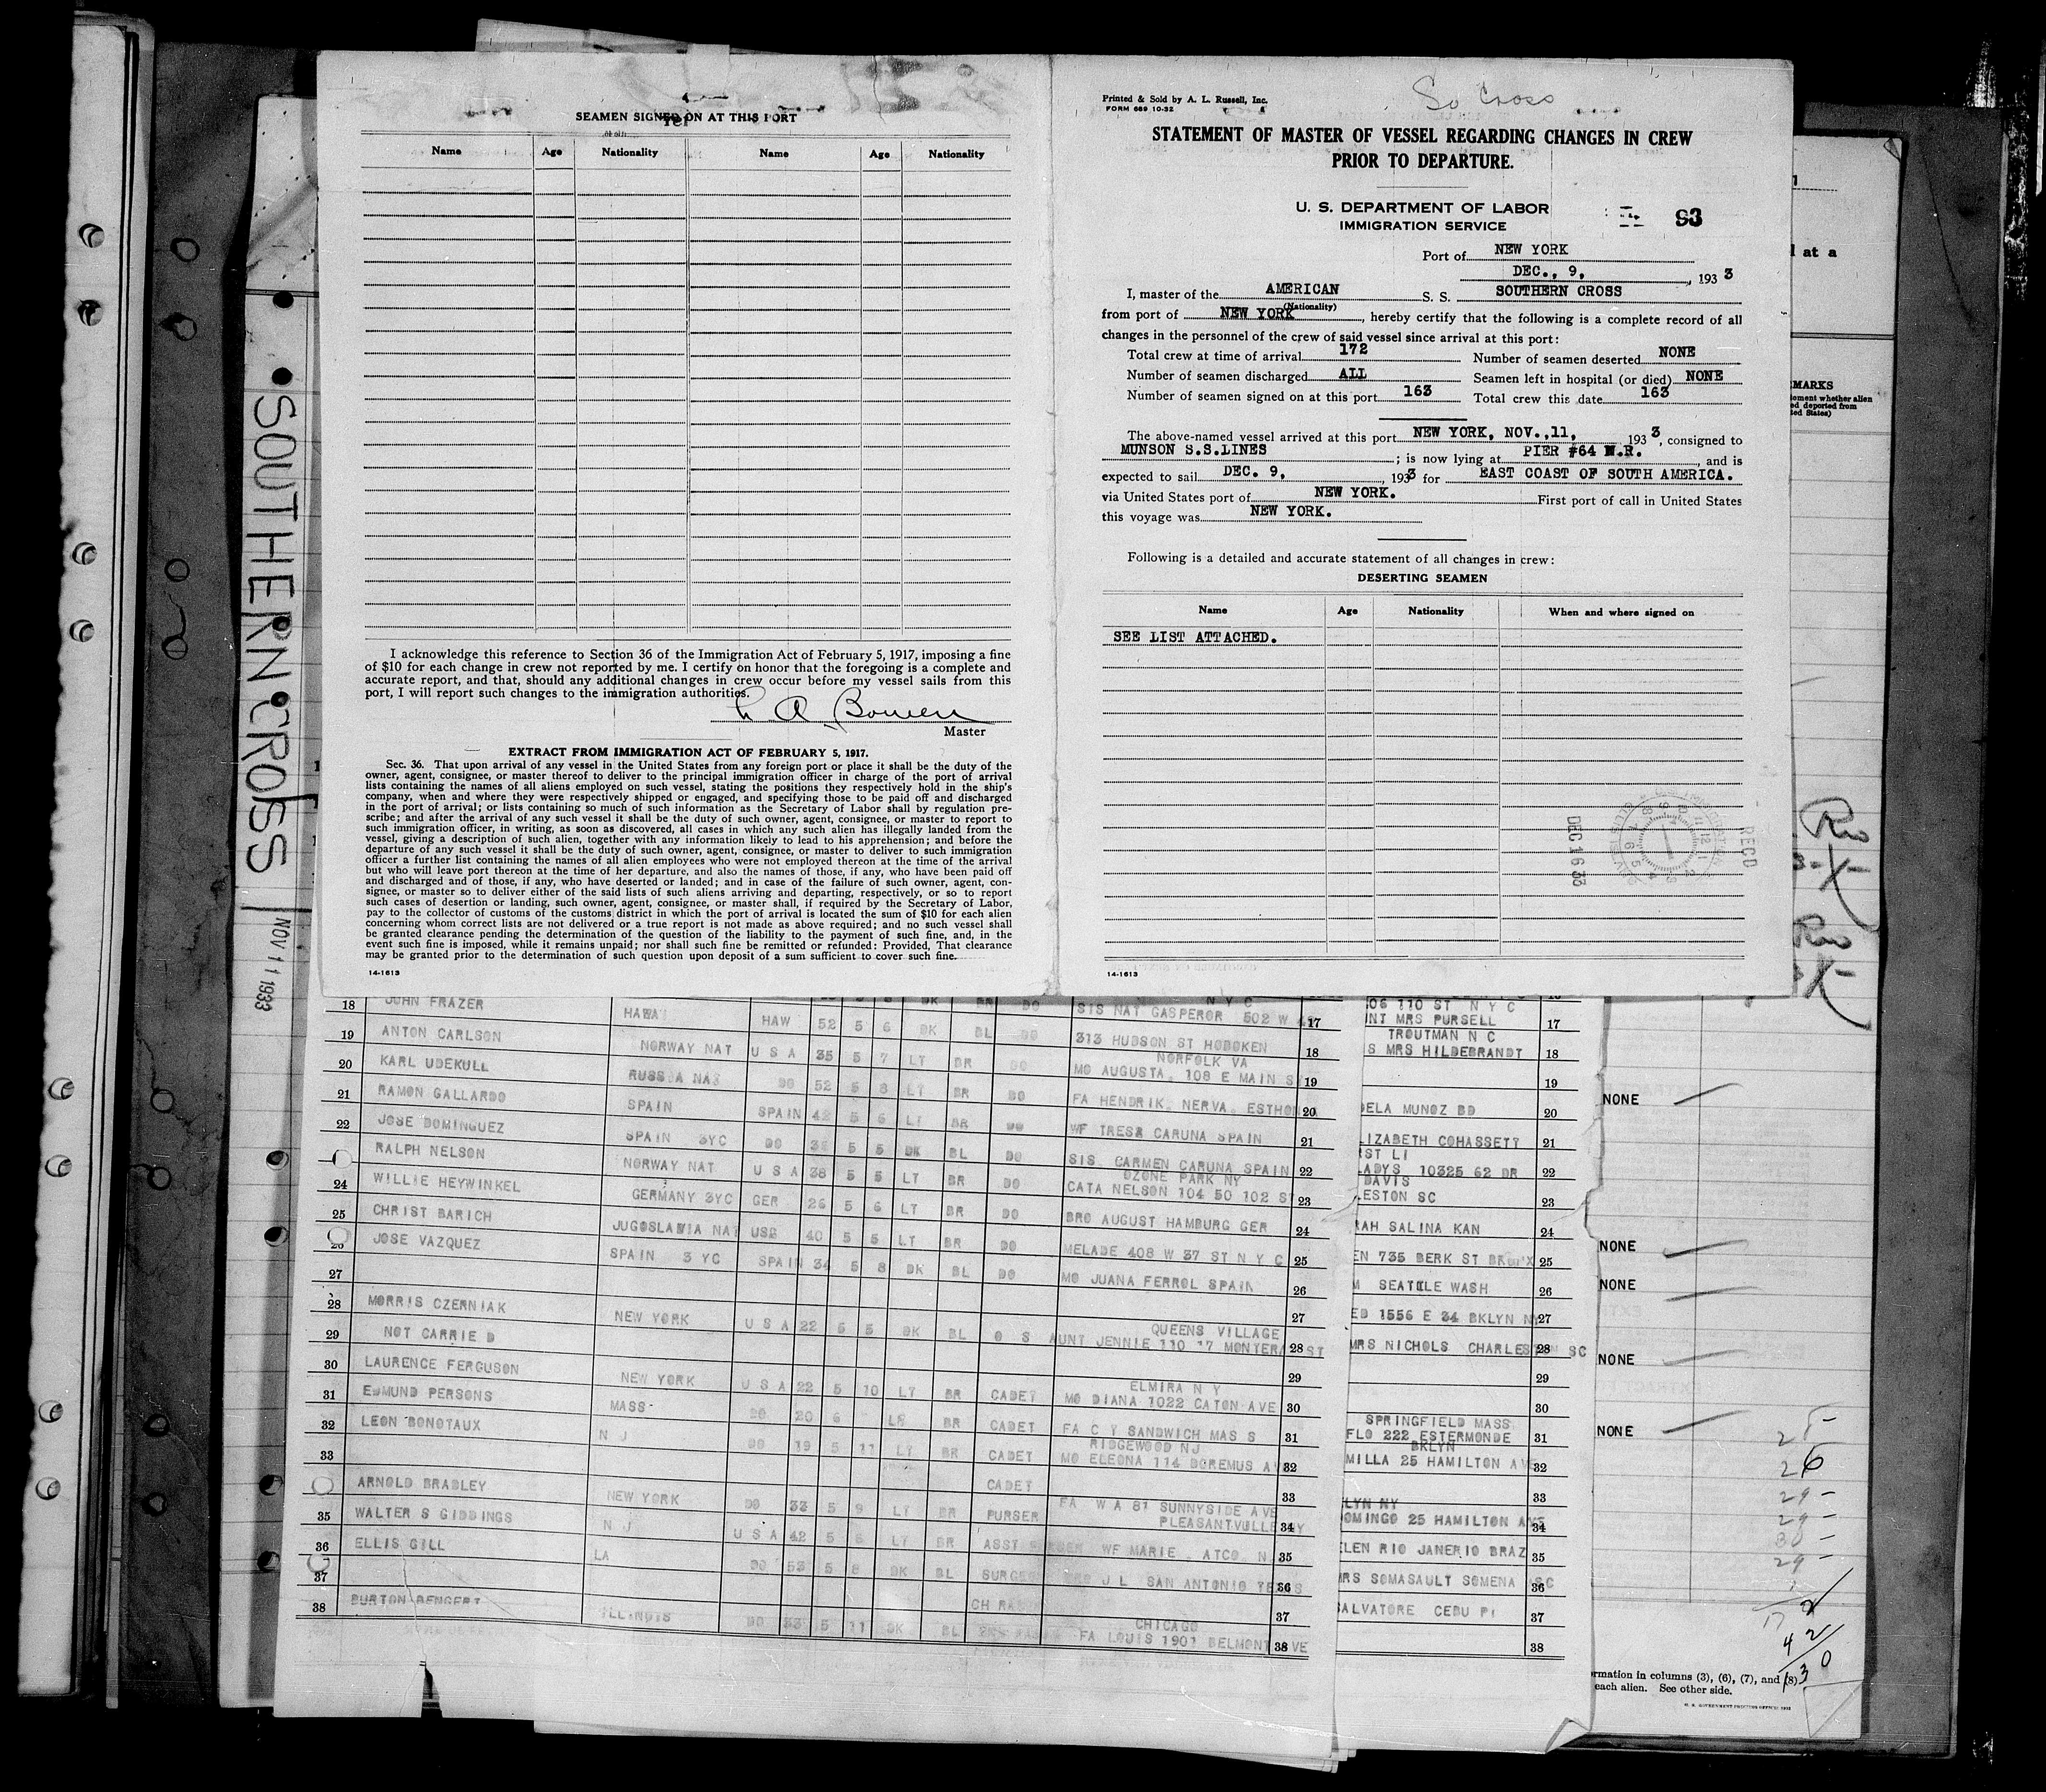 SOUTHERN CROSS
NOV 11 1933
SEAMEN SIGNED ON AT THIS PORT
Name Age Nationality Name Age Nationality
I acknowledge this reference to Section 36 of the Immigration Act of February 5, 1917, imposing a fine
of $10 for each change in crew not reported by me. I certify on honor that the foregoing is a complete and
accurate report, and that, should any additional changes in crew occur before my vessel sails from this
port, I will report such changes to the immigration authorities.
A Bowen
Master
EXTRACT FROM IMMIGRATION ACT OF FEBRUARY 5, 1917.
Sec. 36. That upon arrival of any vessel in the United States from any foreign port or place it shall be the duty of the
owner, agent, consignee, or master thereof to deliver to the principal immigration officer in charge of the port of arrival
lists containing the names of all aliens employed on such vessel, stating the positions they respectively hold in the ship's
company, when and where they were respectively shipped or engaged, and specifying those to be paid off and discharged
in the port of arrival; or lists containing so much of such information as the Secretary of Labor shall by regulation pre-
scribe; and after the arrival of any such vessel it shall be the duty of such owner, agent, consignee, or master to report to
such immigration officer, in writing, as soon as discovered, all cases in which any such alien has illegally landed from the
vessel, giving a description of such alien, together with any information likely to lead to his apprehension; and before the
departure of any such vessel it shall be the duty of such owner, agent, consignee, or master to deliver to such immigration
officer a further list containing the names of all alien employees who were not employed thereon at the time of the arrival
but who will leave port thereon at the time of her departure, and also the names of those, if any, who have been paid off
and discharged and of those, if any, who have deserted or landed; and in case of the failure of such owner, agent, con-
signee, or master so to deliver either of the said lists of such aliens arriving and departing, respectively, or so to report
such cases of desertion or landing, such owner, agent, consignee, or master shall, if required by the Secretary of Labor,
pay to the collector of customs of the customs district in which the port of arrival is located the sum of $10 for each alien
concerning whom correct lists are not delivered or a true report is not made as above required; and no such vessel shall
be granted clearance pending the determination of the question of the liability to the payment of such fine, and, in the
event such fine is imposed, while it remains unpaid; nor shall such fine be remitted or refunded: Provided, That clearance
may be granted prior to the determination of such question upon deposit of a sum sufficient to cover such fine.
14-1613
So Cross
Printed & Sold by A. L. Russell, Inc.
FORM 689 10-32
STATEMENT OF MASTER OF VESSEL REGARDING CHANGES IN CREW
PRIOR TO DEPARTURE.
U. S. DEPARTMENT OF LABOR
IMMIGRATION SERVICE
93
Port of NEW YORK
DEC., 9, , 193 3
I, master of the AMERICAN S. S. SOUTHERN CROSS
(Nationality)
from port of NEW YORK , hereby certify that the following is a complete record of all
changes in the personnel of the crew of said vessel since arrival at this port:
Total crew at time of arrival 172 Number of seamen deserted NONE
Number of seamen discharged ALL Seamen left in hospital (or died) NONE
Number of seamen signed on at this port 163 Total crew this date 163
The above-named vessel arrived at this port NEW YORK, NOV.,11, 193 3, consigned to
MUNSON S.S.LINES ; is now lying at PIER #64 N.R. , and is
expected to sail DEC. 9, , 1933 for EAST COAST OF SOUTH AMERICA.
via United States port of NEW YORK. First port of call in United States
this voyage was NEW YORK.
Following is a detailed and accurate statement of all changes in crew:
DESERTING SEAMEN
Name Age Nationality When and where signed on
SEE LIST ATTACHED.
DEC 16 33
RECD
14-1613
at a
MARKS
18 JOHN FRAZER HAWA HAW 52 5 6 DK BL DO SIS NAT GASPEROR 502 W 17
19 ANTON CARLSON NORWAY NAT U S A 35 5 7 LT BR DO 313 HUDSON ST HOBOKEN 18
20 KARL UDEKULL RUSSIA NAT DO 52 5 8 LT BR DO NORFOLK VA MO AUGUSTA. 108 E MAIN S 19
21 RAMON GALLARDO SPAIN SPAIN 42 5 6 LT BR DO FA HENDRIK. NERVA. ESTHON 20
22 JOSE DOMINGUEZ SPAIN 3YC DO 5 5 DK BL DO WF TRESA CARUNA SPAIN 21
RALPH NELSON NORWAY NAT U S A 38 5 5 LT BR DO SIS CARMEN CARUNA SPAIN 22
24 WILLIE HEYWINKEL GERMANY 3YC GER 26 5 6 LT BR DO OZONE PARK NY CATA NELSON 104 50 102 S 23
25 CHRIST BARICH JUGOSLAWIA NAT 40 5 5 LT BR DO BRO AUGUST HAMBURG GER 24
26 JOSE VAZQUEZ SPAIN 3 YC SPAIN 34 5 8 DK BL DO MELADE 408 W 37 ST N Y C 25
27 MO JUANA FERROL SPAIN 26
28 MORRIS CZERNIAK NEW YORK U S A 22 5 5 DK BL O S 27
29 NOT CARRIED QUEENS VILLAGE AUNT JENNIE 110 17 MONTERA ST 28
30 LAURENCE FERGUSON NEW YORK U S A 22 5 10 LT BR CADET 29
31 EDMUND PERSONS MASS DO 20 6 BR CADET ELMIRA N Y MO DIANA 1022 CATON AVE 30
32 LEON BONOTAUX N J DO 19 5 11 LT BR CADET FA C Y SANDWICH MAS S 31
33 RIDGEWOOD NJ MO ELEONA 114 DOREMUS A 32
ARNOLD BRADLEY NEW YORK DO 33 5 9 LT BR CADET PURSER 33
35 WALTER S GIDDINGS N J U S A 42 5 LT BR ASST FA W A 81 SUNNYSIDE AVE PLEASANTVILLE NY 34
36 ELLIS GILL LA DO 53 5 8 DK BL WF MARIE ATCO N 35
37 J L SAN ANTONIO TEXAS 36
38 BURTON BENGERT ILLINOIS DO 33 5 11 DK BL 37
CHICAGO FA LOUIS 1901 BELMONT AVE 38
06 110 ST N Y C
NT MRS PURSELL 17
TROUTMAN N C
S MRS HILDEBRANDT 18
19
DELA MUNOZ BD 20
LIZABETH COHASSETT 21
ST LI
ADYS 10325 62 DR 22
DAVIS
LESTON SC 23
RAH SALINA KAN 24
EN 735 BERK ST BRONX 25
M SEATTLE WASH 26
ED 1556 E 34 BKLYN NY 27
MRS NICHOLS CHARLESTON SC 28
29
30
SPRINGFIELD MASS
FLO 222 ESTERMONDE 31
BKLYN
MILLA 25 HAMILTON AVE 32
33
LYN NY
OMINGO 25 HAMILTON AVE 34
ELEN RIO JANERIO BRAZ 35
MRS SOMASAULT SOMENA 36
SALVATORE CEBU PI 37
38
Rio
Rio
NONE
NONE
NONE
NONE
NONE
26
29 -
29 -
30 -
29 -
42
130
rmation in columns (3), (6), (7), and (8)
each alien. See other side.